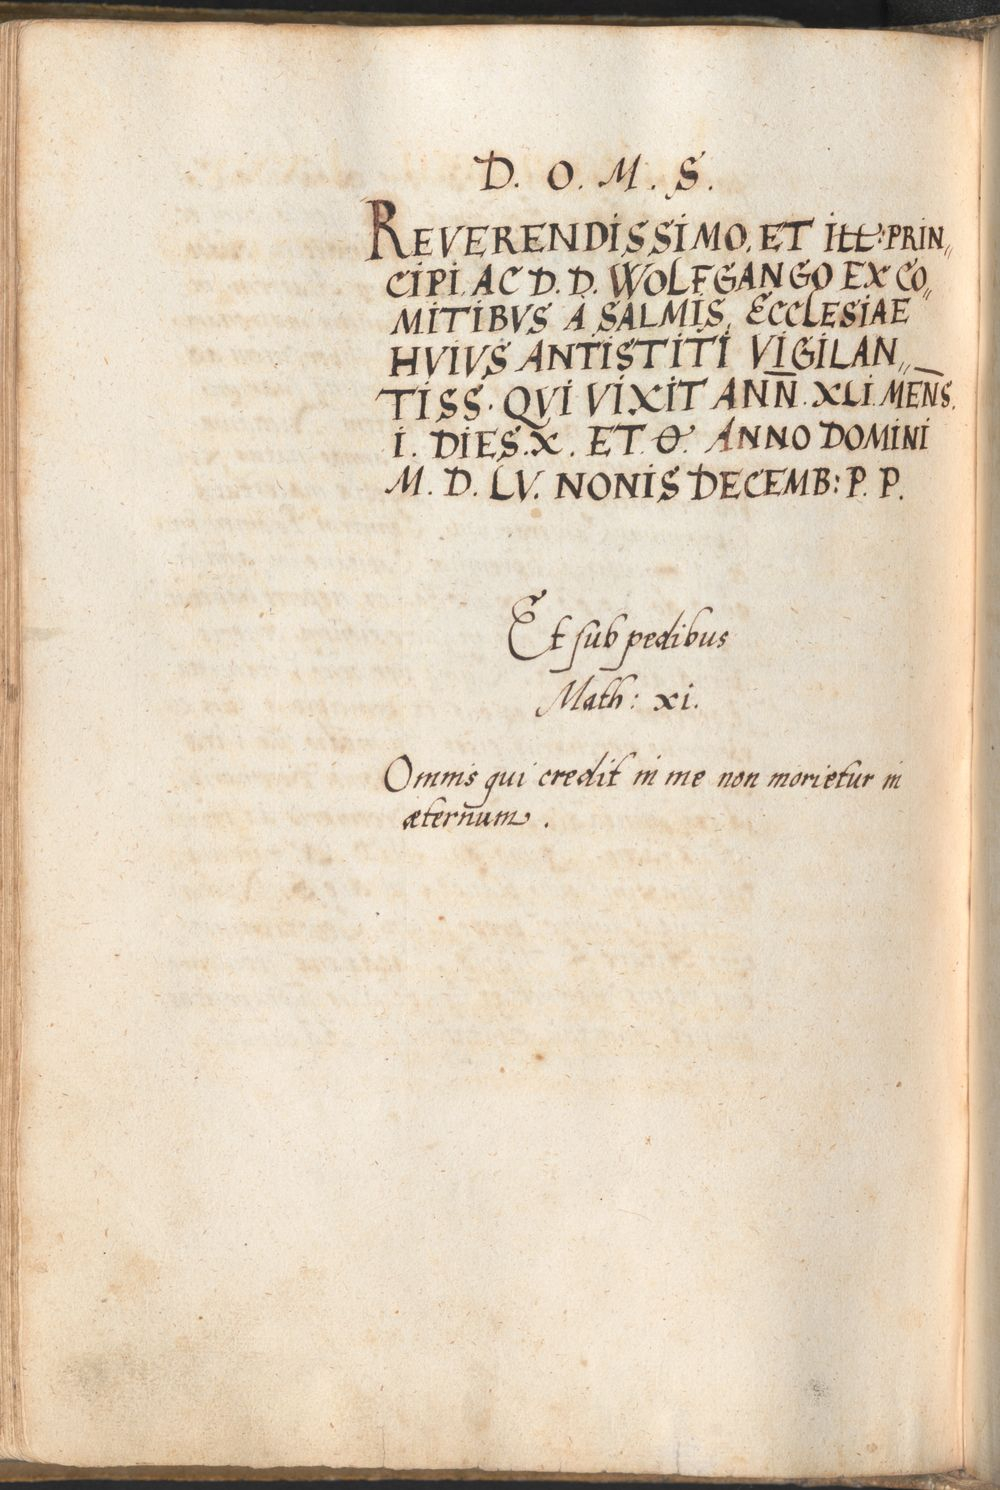 D. O. M. S.
REVERENDISSIMO, ET ILL: PRIN,,
CIPI. AC D. D. WOLFGANGO EX CO,,
MITIBVS A SALMIS, ECCLESIAE
HVIVS ANTISTITI VIGILAN,,
TISS. QVI VIXIT AN̅N̅. XLI. MEN̅S.
I. DIES. X. ET. O. ANNO DOMINI
M. D. LV. NONIS DECEMB: P. P.
Et sub pedibus
Math: xi.
Omnis qui credit in me non morietur in
æternum.